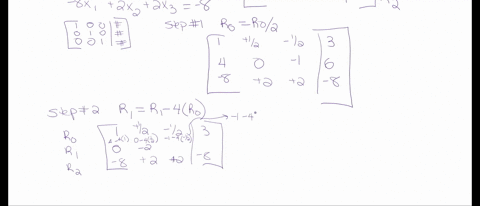 -8x₁ + 2x₂ + 2x₃ = -8
1 0 0 #
0 1 0 #
0 0 1 #
step#1 R0 = R0/2
1 +1/2 -1/2 3
4 0 -1 6
-8 +2 +2 -8
step#2 R1 = R1-4(R0)
→ -1-4*
R0 1 +1/2 -1/2 3
R1 0 -2
R2 -8 +2 +2 -8